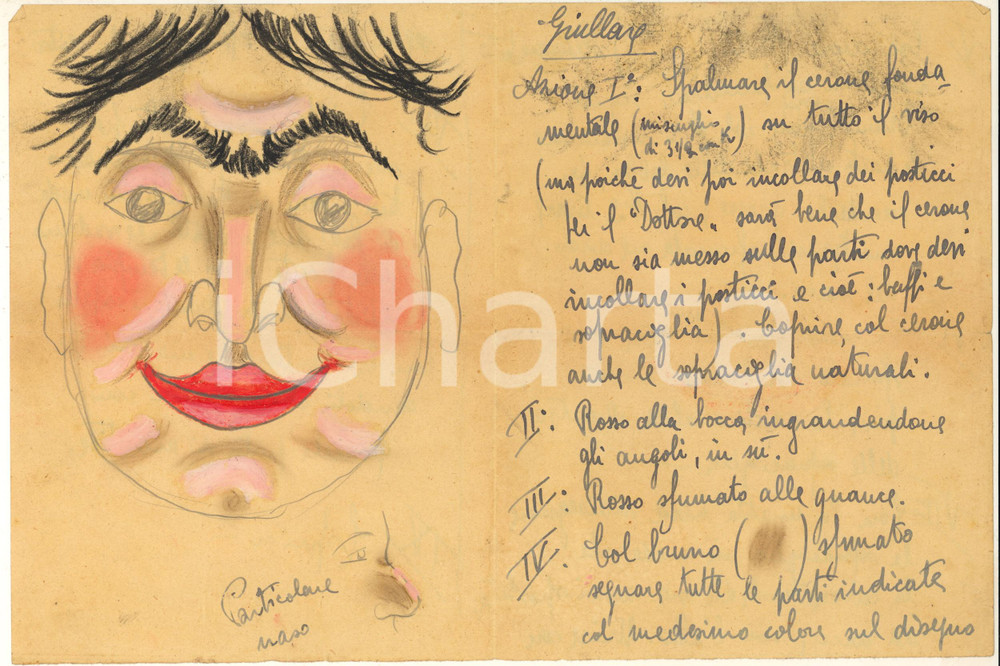 Giullare
Azione Iº: Spalmare il cerone fonda-
mentale (miscuglio
di 3½ con K) su tutto il viso
(ma poiché devi poi incollare dei posticci
per il "Dottore" sarà bene che il cerone
non sia messo sulle parti dove devi
incollare i posticci e cioè: baffi e
sopraciglia). Coprire col cerone
anche le sopraciglia naturali.
II: Rosso alla bocca ingrandendone
gli angoli, in sù.
III: Rosso sfumato alle guance.
IV: Col bruno ( ) sfumato
segnare tutte le parti indicate
col medesimo colore sul disegno
Particolare
naso
iCharta